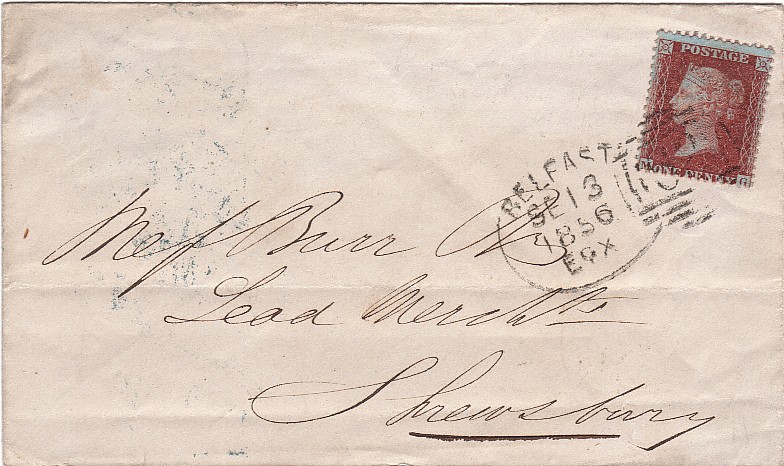 POSTAGE
ONE PENNY G
BELFAST
SE 13
1856
Messrs Burr
Lead Merchts
Shrewsbury